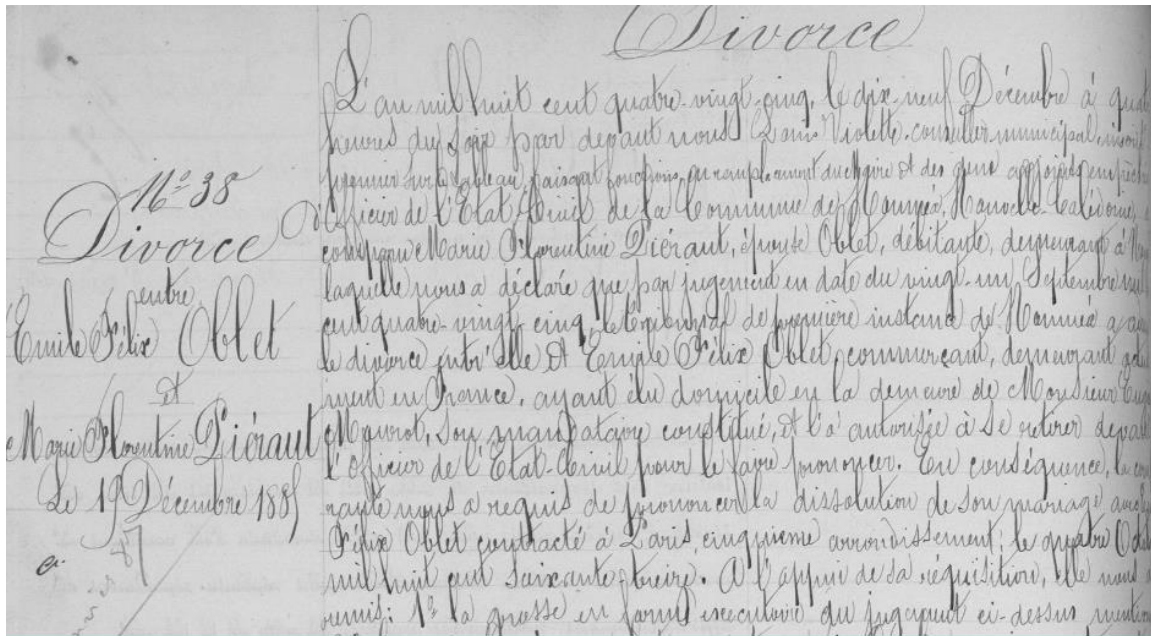 Divorce
N° 38
Divorce
entre
Emile Félix Oblet
et
Marie Florentine Piéraut
Le 19 Décembre 1885
L'an mil huit cent quatre-vingt-cinq, le dix-neuf Décembre à quat
heures du soir par devant nous Louis Violette, conseiller municipal, inscrit
premier sur le tableau faisant fonctions, en remplacement du Maire et des deux adjoints empêchés
d'Officier de l'Etat-Civil de la Commune de Nouméa, Nouvelle-Calédonie, a
comparu Marie Florentine Piéraut, épouse Oblet, débitante, demeurant à Nou
laquelle nous a déclaré que par jugement en date du vingt-un Septembre mil
cent quatre-vingt cinq, le tribunal de première instance de Nouméa a
le divorce entr'elle et Emile Félix Oblet, commerçant, demeurant actu
ment en France, ayant élu domicile en la demeure de Monsieur
Mourot, son mandataire constitué, et l'a autorisée à se retirer deva
l'Officier de l'Etat-Civil pour le faire prononcer. En conséquence, la com
rante nous a requis de prononcer la dissolution de son mariage avec
Félix Oblet contracté à Paris, cinquième arrondissement, le quatre Octo
mil huit cent soixante-treize. A l'appui de sa réquisition, elle nous a
remis: 1° la grosse en forme exécutoire du jugement ci-dessus mention